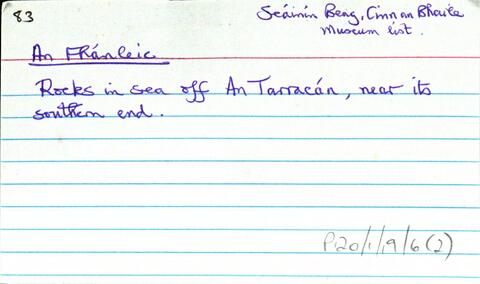 83
Seáinín Beag, Cinn an Bhaile
Museum list.
An Fhránleic
Rocks in sea off An Tarracán, near its
southern end.
P.20/1/9/6(2)